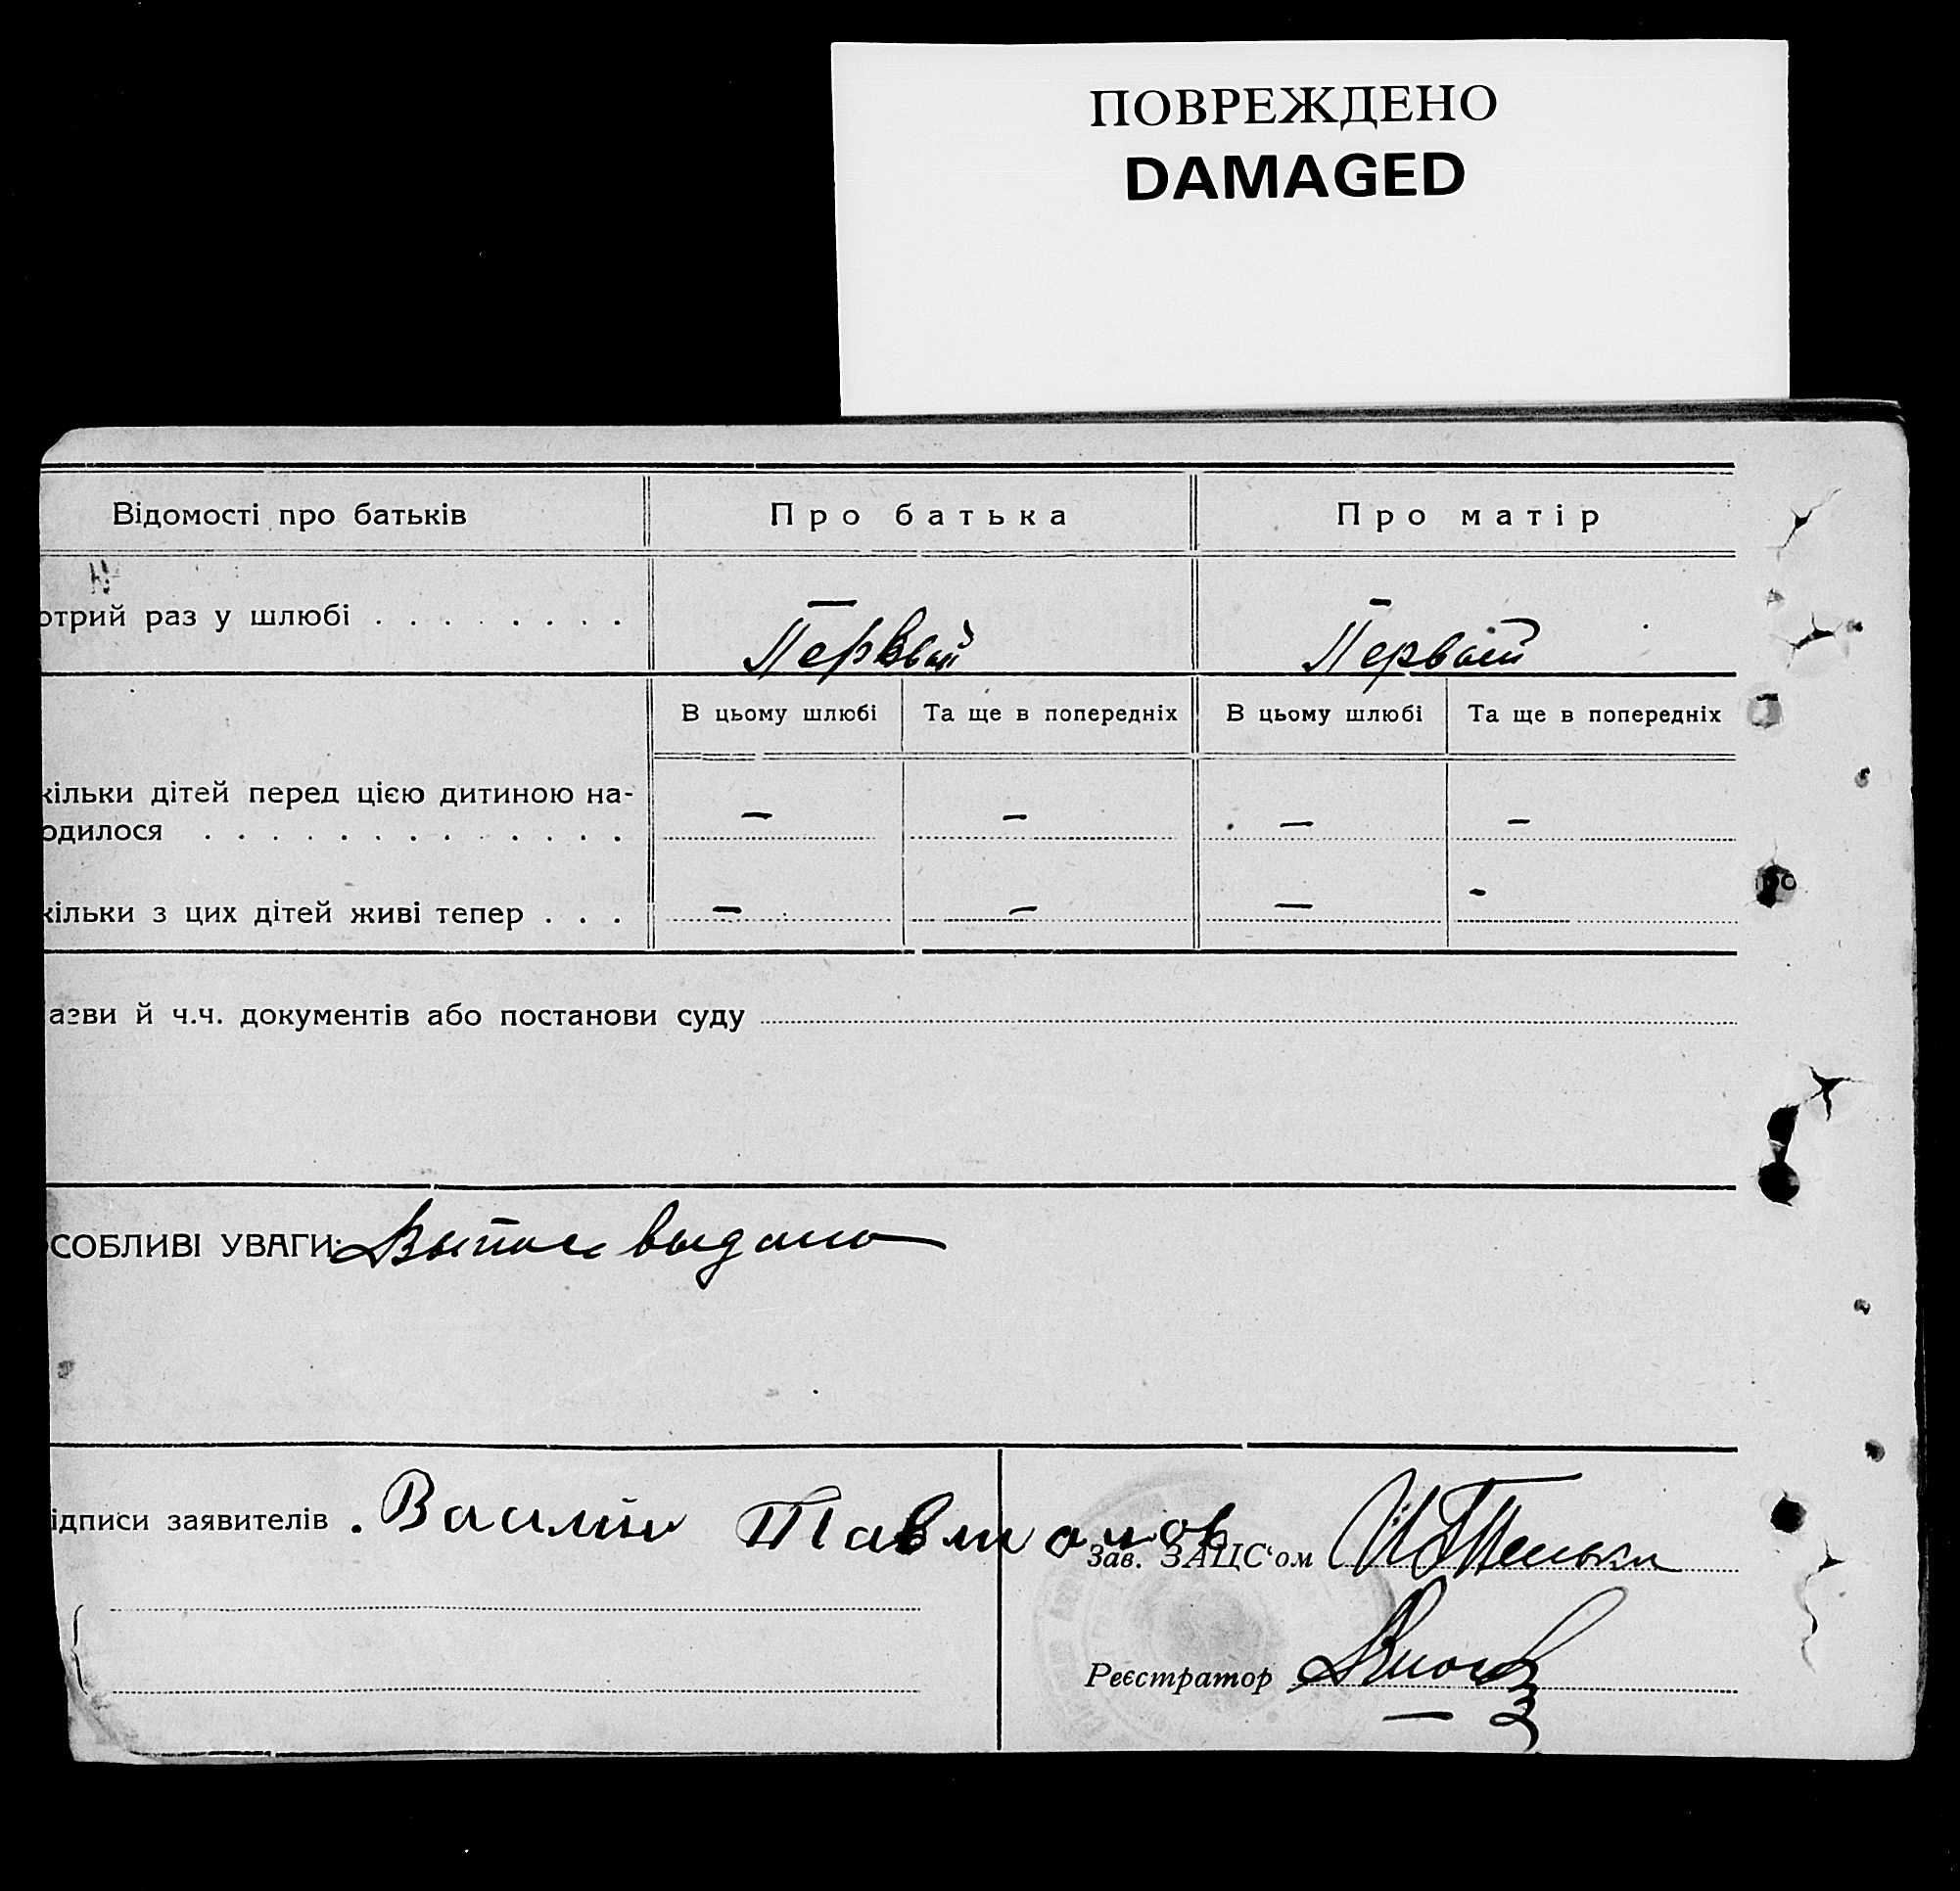 ПОВРЕЖДЕНО
DAMAGED
Відомості про батьків
Про батька
Про матір
отрий раз у шлюбі . . . . . . . .
Первый
Первый
В цьому шлюбі
Та ще в попередніх
В цьому шлюбі
Та ще в попередніх
кільки дітей перед цією дитиною на-
одилося . . . . . . . . . . . . . .
—
—
—
—
кільки з цих дітей живі тепер . . .
—
—
—
-
азви й ч.ч. документів або постанови суду
СОБЛИВІ УВАГИ: выдано
ідписи заявителів . Василий
Зав. ЗАЦС‘ом
Реєстратор